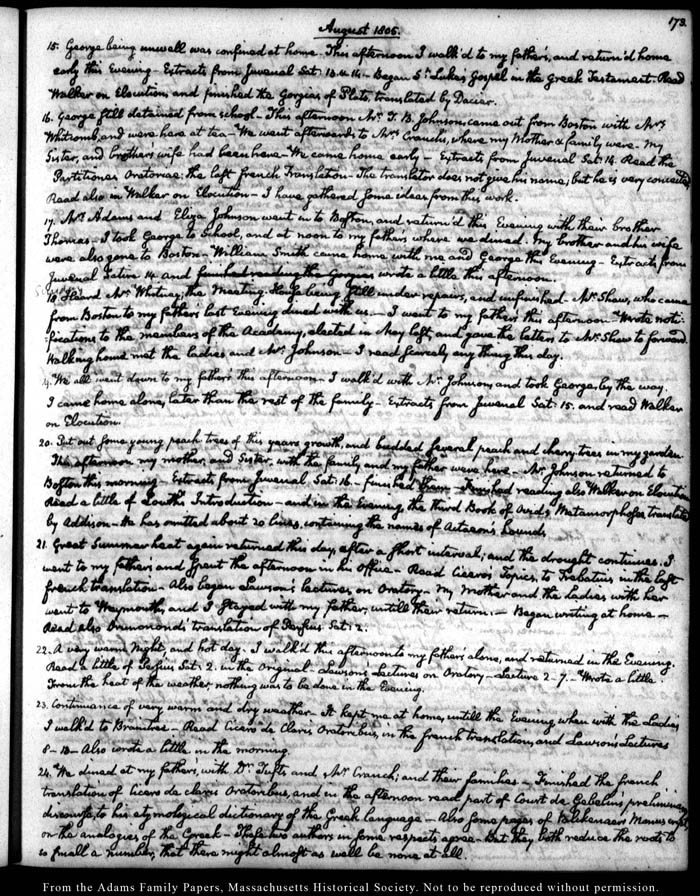 173.
August 1805.
15. George being unwell was confined at home. This afternoon I walk'd to my father's, and return'd home
early this Evening. Extracts from Juvenal Sat. 13 & 14. Began St. Luke's Gospel in the Greek Testament. Read
Walker on Elocution, and finished the Gorgias of Plato, translated by Dacier.
16. George still detained from school. This afternoon Mr. T. B. Johnson, came out from Boston with Mrs
Whitcomb, and were here at tea. We went afterwards to Mr. Cranch's, where my Mother & family were. My
Sister, and brother's wife had been here. We came home early. Extracts from Juvenal Sat. 14. Read the
Partitiones Oratoriae; the last french Translation. The translator does not give his name; but he is very conceited
Read also in Walker on Elocution. I have gathered some ideas from this work.
17. Mrs. Adams and Eliza Johnson went in to Boston, and return'd this Evening with their brother
Thomas. I took George to School, and at noon to my father's where we dined. My brother and his wife
were also gone to Boston. William Smith came home with me and George this Evening. Extracts from
Juvenal Satire 14. and finished reading the Gorgias. wrote a little this afternoon.
18. Heard Mr. Whitney, the Meeting House being still under repairs, and unfinished. Mr. Shaw, who came
from Boston to my father's last Evening dined with us. I went to my father's this afternoon. Wrote noti-
fications to the members of the Academy, elected in May last, and gave the letters to Mr. Shaw to forward.
Walking home met the ladies and Mr. Johnson. I read scarcely any thing this day.
19. We all went down to my father's this afternoon. I walk'd with Mr. Johnson, and took George, by the way.
I came home alone, later than the rest of the family. Extracts from Juvenal Sat. 15. and read Walker
on Elocution.
20. Put out some young peach trees of this years growth, and budded several peach and cherry trees in my garden.
This afternoon my mother, and Sister, with the family and my father were here. Mr. Johnson returned to
Boston this morning. Extracts from Juvenal, Sat. 16. finished reading also Walker on Elocution
Read a little of Louth's Introduction. and in the Evening, the third Book of Ovid's Metamorphoses, translated
by Addison. He has omitted about 20 lines, containing the names of Actaeon's hounds.
21. Great Summer heat again returned this day, after a short interval; and the drought continues. I
went to my father's and spent the afternoon in his office. Read Cicero's Topics, to Trebatius in the last
french translation. Also began Lawson's lectures, on Oratory. My Mother and the Ladies with her
went to Weymouth, and I stayed with my father, untill their return. Began writing at home.
Read also Drummond's translation of Persius Sat: 2.
22. A very warm Night, and hot day. I walk'd this afternoon to my father's, alone, and returned in the Evening.
Read a little of Persius Sat: 2. in the Original. Lawson's Lectures on Oratory. Lecture 2-7. Wrote a little.
From the heat of the weather, nothing was to be done in the Evening.
23. Continuance of very warm and dry weather. It kept me at home, untill the Evening, when with the Ladies
I walk'd to Braintree. Read Cicero de Claris Oratoribus, in the french translation, and Lawson's Lectures
8-13. Also wrote a little in the morning.
24. We dined at my father's, with Dr. Tufts and Mr. Cranch; and their families. Finished the french
translation of Cicero de claris Oratoribus, and in the afternoon read part of Court de Gebelin's preliminary
discourse, to his etymological dictionary of the Greek language. Also some pages of
on the analogies of the Greek. These two authors in some respects agree. But they both reduce the roots to
so small a number, that there might almost as well be none at all.
From the Adams Family Papers, Massachusetts Historical Society. Not to be reproduced without permission.